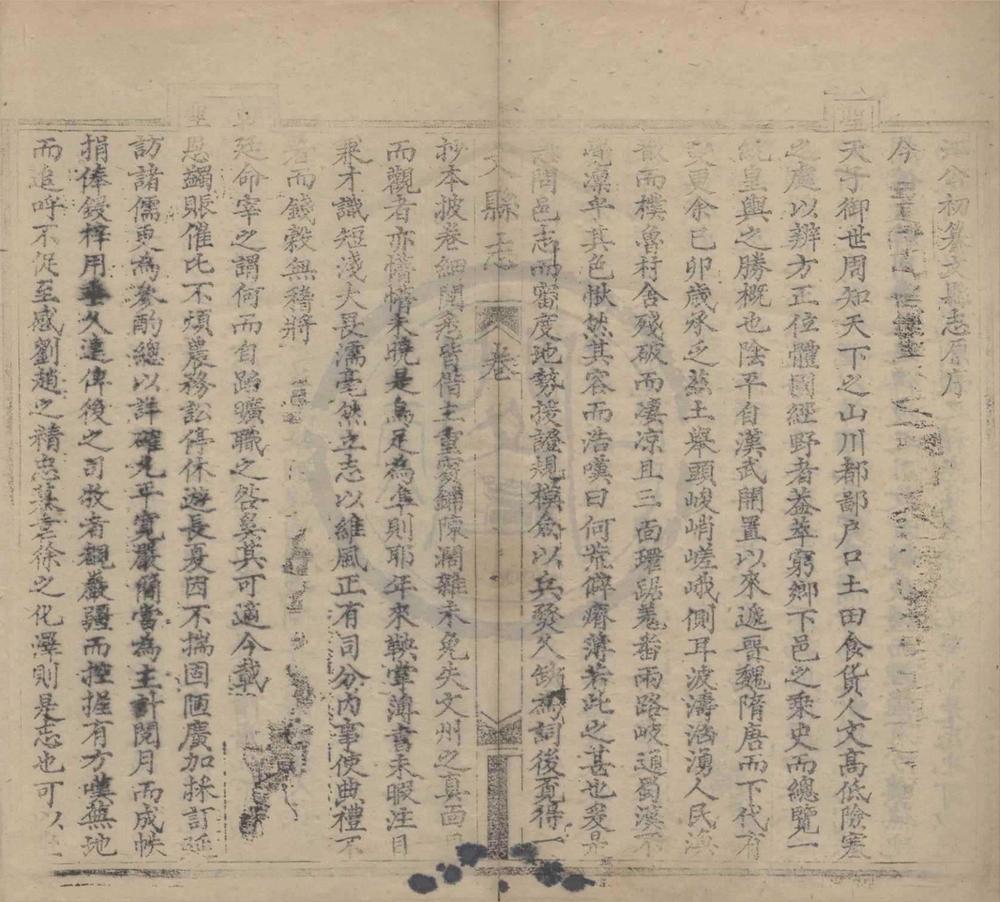 公初纂文縣志原序
今
聖
天子御世周知天下之山川都鄙户口土田食貨人文高低險塞
之處以辨方正位體國經野者葢萃窮鄉下邑之乘史而總覽一
統皇輿之勝概也陰平自漢武開置以來遞晋魏隋唐而下代有
更余己卯歲承乏茲土舉頭峻峭嵯峨側耳波濤洶湧人民
而樸魯村舍殘破而凄凉且三面環踞羗番兩路岐通蜀漢不
凛乎其色愀然其容而浩嘆曰何荒僻瘠薄若此之甚也爰是
問邑志而審度地勢援證規模僉以兵發久缺為詞後覓得一
文縣志
卷
抄本披卷細閲愈皆偕主重窽錯陳澜雜未免失文州之真面
而觀者亦懵懵未曉是烏足為凖則耶年來鞅掌薄書未暇注目
才識短淺大畏濡毫然立志以維風正有司分内事使典禮不
著而錢穀無稽將
聖
廷命宰之謂何而自蹈曠職之咎奚其可適今載
恩蠲賑催比不煩農務訟停休遊長夏因不揣固陋廣加採訂延
訪諸儒更為參酌總以詳確允平寬嚴簡當為主計閲月而成帙
捐俸鋟梓用垂久遠俾後之司牧者觀巖疆而控握有方嘆蕪地
而追呼不促至感劉趙之精忠慕徐之化澤則是志也可以